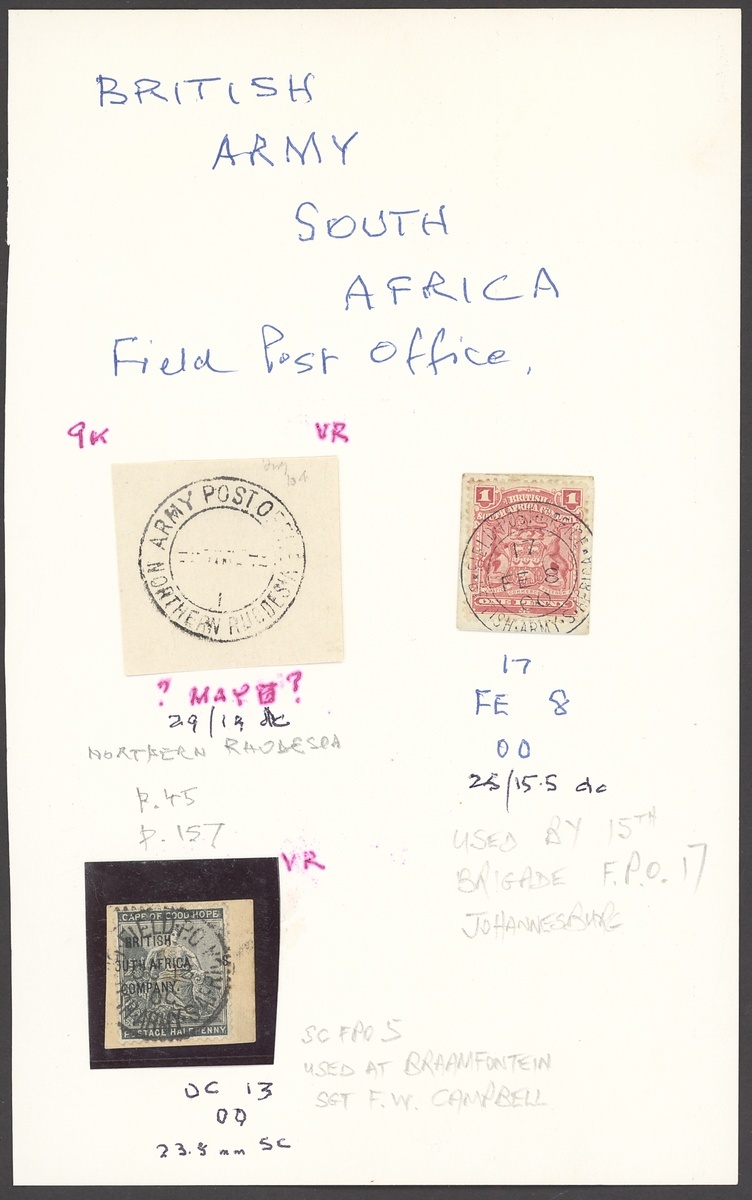 BRITISH
ARMY
SOUTH
AFRICA
Field Post Office.
9K VR
ARMY POST OFFICE
1
NORTHERN RHODESIA
1 BRITISH 1
SOUTH AFRICA COMPANY
17
FE 8
ISH.ARMY.S.AFRICA
? MAY ?
29/19 dc
NORTHERN RHODESIA
p.45
p.157
17
FE 8
00
25/15.5 dc
USED BY 15TH
BRIGADE F.P.O. 17
JOHANNESBURG
VR
CAPE OF GOOD HOPE
FIELD P.O.
BRITISH
SOUTH AFRICA
COMPANY.
00
ARMY.S.AFRICA
POSTAGE HALFPENNY
OC 13
00
23.5 mm SC
SC FPO 5
USED AT BRAAMFONTEIN
SGT F.W. CAMPBELL